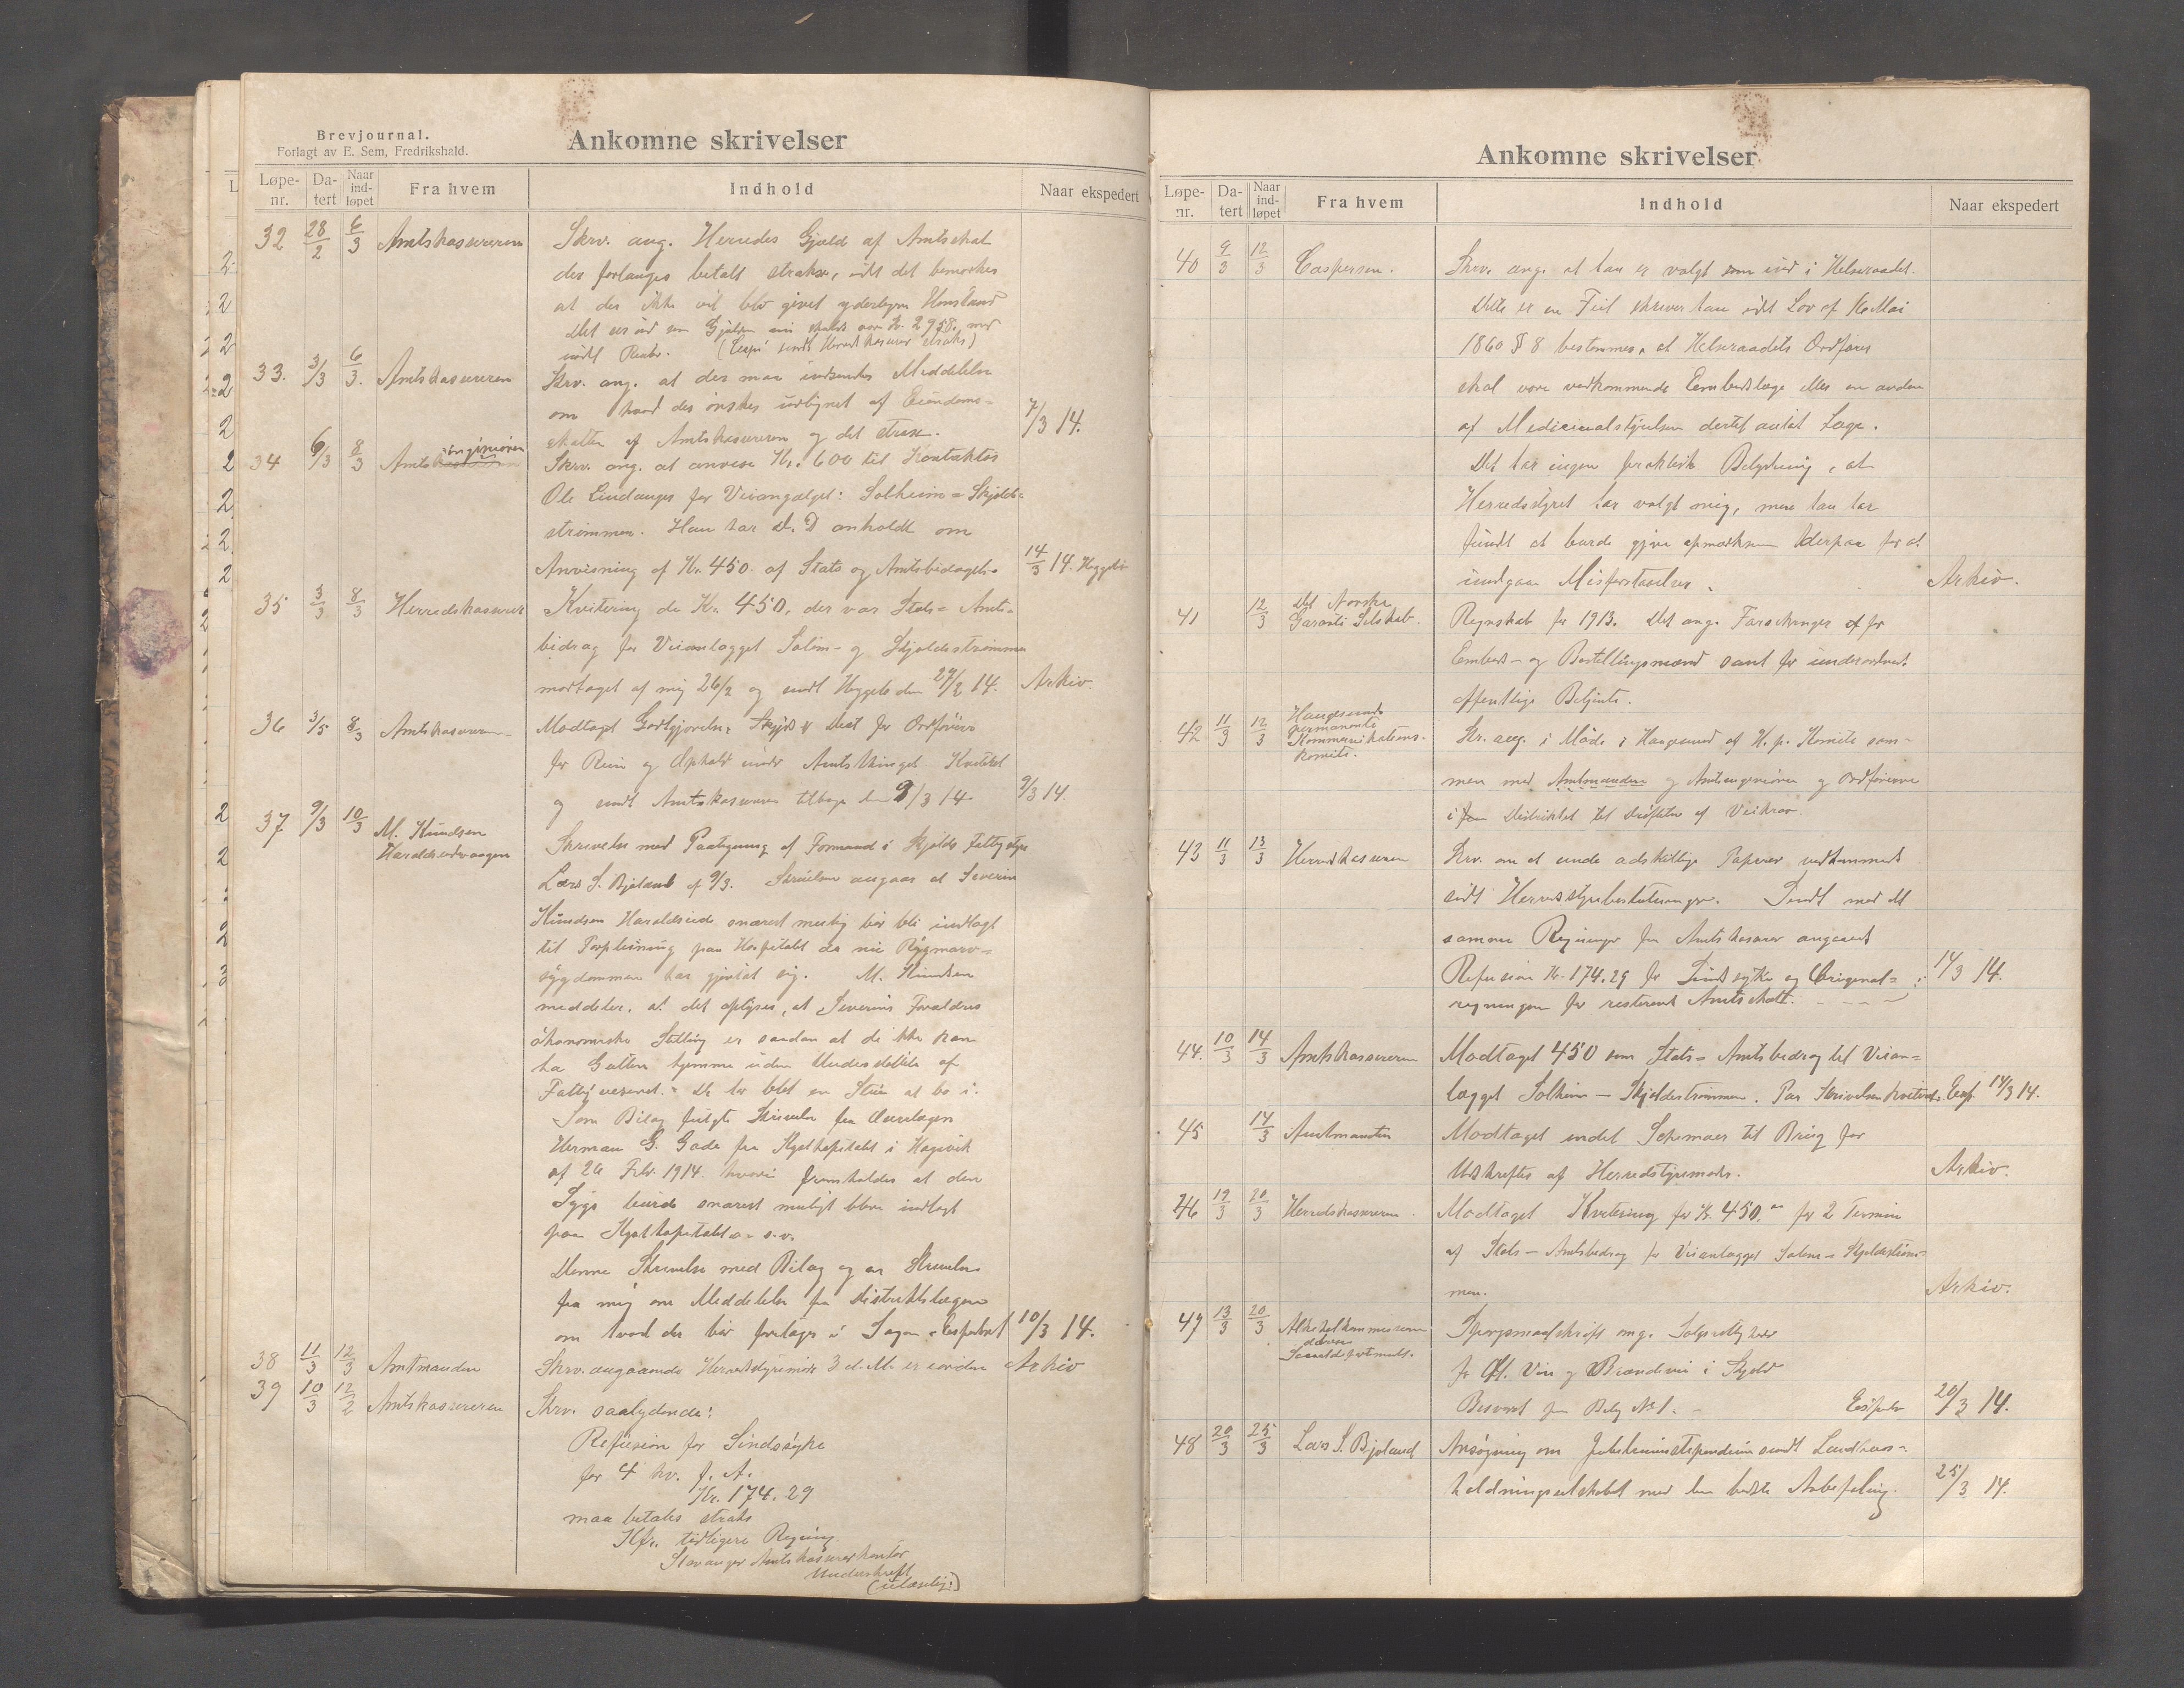 Brevjournal.
Forlagt av E. Sem, Fredrikshald.
Ankomne skrivelser
Løpe-nr. Da-tert Naar ind-løpet Fra hvem Indhold Naar ekspedert
32 28/2 6/3 Amtskassereren Skrv. ang. Herredes Gjæld af Amtsskat
der forlanges betalt straks, idet det bemerkes
at der ikke vil blir givet yderligere Henstand
Det ser ud som Gjælden var Kr. 2958, med
indt Renter. (Ecsp. sendt Herredskasserer straks)
33. 3/3 6/3. Amtskassereren Skrv. ang. at der maa indsendes Meddelelse
om hvad der ønskes udlignet af Eiendoms-
skatten af Amtskassereren og det strax. 7/3 14.
34 6/3 8/3 Amtsingeniøren Skrv. ang. at anvise Kr. 600 til Kontraktør
Ole Lindanger for Veianlægget: Solheim - Skjolds-
strømmen. Han har s. D anholdt om
Anvisning af Kr. 450 af Stats og Amtsbidraget. 14/3 14.
35 3/3 8/3 Herredskasserer Kvitering de Kr. 450, der var Stats- Amts-
bidrag for Veianlægget Solem- og Skjoldestrømmen
modtaget af mig 26/2 og sendt den 27/2 14. Arkiv.
36 3/5 8/3 Amtskassereren Modtaget Godtgjørelse, Skyds & Diet for Ordføreren
for Reise og Ophold under Amtsthinget. Kvitert
og sendt Amtskassereren tilbage den 9/3 14 9/3 14.
37 9/3 10/3 M. Knudsen
Haraldseidvaagen
Skrivelse med Paategning af Formand i Skjolds Fattigstyre
Lars S. Bjoland af 9/3. Skrivelsen angaar at Severin
Knudsen Haraldseide snarest mulig bør bli indlagt
til Forpleining paa Hospitalet da nu Rygmarv-
sygdommen har gjentat sig. M. Knudsen
meddeler, at det oplyses, at Severins Forældres
økonomiske Stilling er saadan at de ikke kan
ha Gutten hjemme uden Understøttelse af
Fattigvæsenet. De har blot en Stue at bo i.
Som Bilag fulgte Skrivelse fra Overlægen
Herman G. Gade fra Kysthospitalet i Hagevik
af 26 Feb. 1914. hvori fremholdes at den
Syge burde snarest muligt blive indlagt
paa Kysthospitalet o. s. v.
Denne Skrivelse med Bilag og en Skrivelse
fra mig om Meddelelse fra Distriktslægen
om hvad der bør foretages i Sagen. Ecspedert 10/3 14.
38 11/3 12/3 Amtmanden Skrv. angaaende Herredstyremøde 3 d. M. er Arkiv
39 10/3 12/2 Amtskassereren Skrv. saalydende:
Refusion for Sindssyke
for 4 kv. f. A.
Kr. 174.29
maa betales straks
Kfr. tidligere Regning
Stavanger Amtskassererkontor
Underskrift
(ulæselig)
Ankomne skrivelser
Løpe-nr. Da-tert Naar ind-løpet Fra hvem Indhold Naar ekspedert
40 9/3 12/3 Caspersen. Skrv. ang. at han er valgt som ind i Helseraadet.
Dette er en Feil skriver han idet Lov af 16 Mai
1860 § 8 bestemmes, at Helseraadets Ordfører
skal være vedkommende Embedslæge eller en anden
af Medicinalstyrelsen dertil antat Læge.
Det har ingen praktisk Betydning, at
Herredsstyret har valgt mig, men han har
fundt at burde gjøre opmærksom derpaa for at
undgaa Misforstaaelser. Arkiv.
41 12/3 Det Norske
Garanti Selskab. Regnskab for 1913. Det ang. Forsikringer af for
Embeds- og Bestillingsmænd samt for underordnede
offentlige Betjente.
42 11/3 12/3 Haugesunds
permanente
Kommunikations-
komite. Skr. ang. i Møde i Haugesund af H. p. Komite sam-
men med Amtmanden og Amtsingeniøren og Ordførerne
i Distriktet til Drøftelse af Veikrav.
43 11/3 13/3 Herredskasereren Skrv. om at sende adskillige Papirer vedkommende
sidst Herredsstyrebeslutninger. Sendt med det
samme Regninger fra Amtskasserer angaaende
Refusion Kr. 174.29 for Sindssyke og Original- 14/3 14.
regningen for resterende Amtsskatt.
44. 10/3 14/3 Amtskassereren Modtaget 450 som Stats- Amtsbidrag til Veian-
lægget Solheim - Skjoldestrømmen. Paa Skrivelsen kvitert. Ecsp. 14/3 14.
45 14/3 Amtmanden Modtaget endel Schemaer til Brug for
Udskrifter af Herredstyremøder. Arkiv.
46 19/3 20/3 Herredskassereren. Modtaget Kvitering for Kr. 450.00 for 2 Termin
af Stats- Amtsbidrag for Veianlægget Solem - Skjoldestrøm-
men. Arkiv.
47 13/3 20/3 Alkoholkommissionen
Socialdepartmentet. Spørgsmaalskrift ang. Salgsrettigheder
for Øl. Vin og Brændevin i Skjold
Besvart paa Bilag № 1. - Ecsp. 20/3 14.
48 20/3 25/3 Lars S. Bjoland Ansøgning om Jubilæumsstipendium sendt Landhus-
holdningsselskabet med den bedste Anbefaling. 25/3 14.